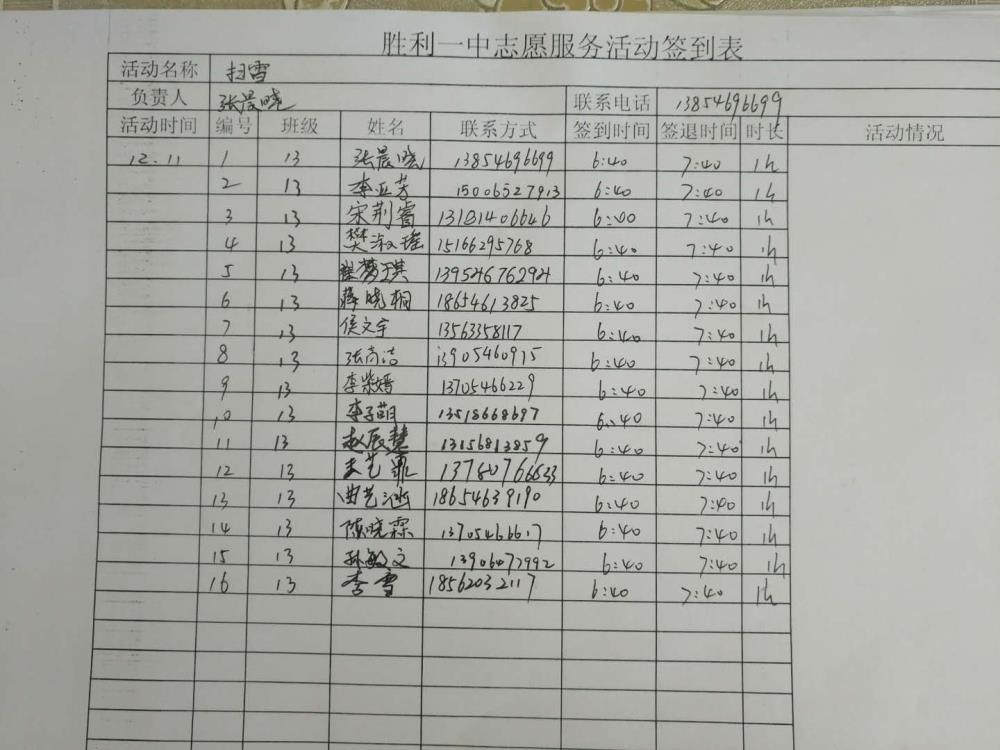 胜利一中志愿服务活动签到表
活动名称 扫雪
负责人 张晨晓 联系电话 13854696699
活动时间 编号 班级 姓名 联系方式 签到时间 签退时间 时长 活动情况
12.11 1 13 张晨晓 13854696699 6:40 7:40 1h
2 13 李亚芳 15006527913 6:40 7:40 1h
3 13 宋荆睿 13181406646 6:00 7:40 1h
4 13 樊淑瑶 15166295768 6:40 7:40 1h
5 13 梦琪 13954676294 6:40 7:40 1h
6 13 蒋晓桐 18654613825 6:40 7:40 1h
7 13 侯文宇 13563358117 6:40 7:40 1h
8 13 张尚洁 13905460915 6:40 7:40 1h
9 13 李紫嫣 13705466229 6:40 7:40 1h
10 13 李子萌 13518668697 6:40 7:40 1h
11 13 赵辰慧 13156813859 6:40 7:40 1h
12 13 艺鼎 13780766633 6:40 7:40 1h
13 13 曲艺涵 18654639190 6:40 7:40 1h
14 13 陈晓霖 13705466617 6:40 7:40 1h
15 13 孙敏文 13906472992 6:40 7:40 1h
16 13 李雪 18562032117 6:40 7:40 1h